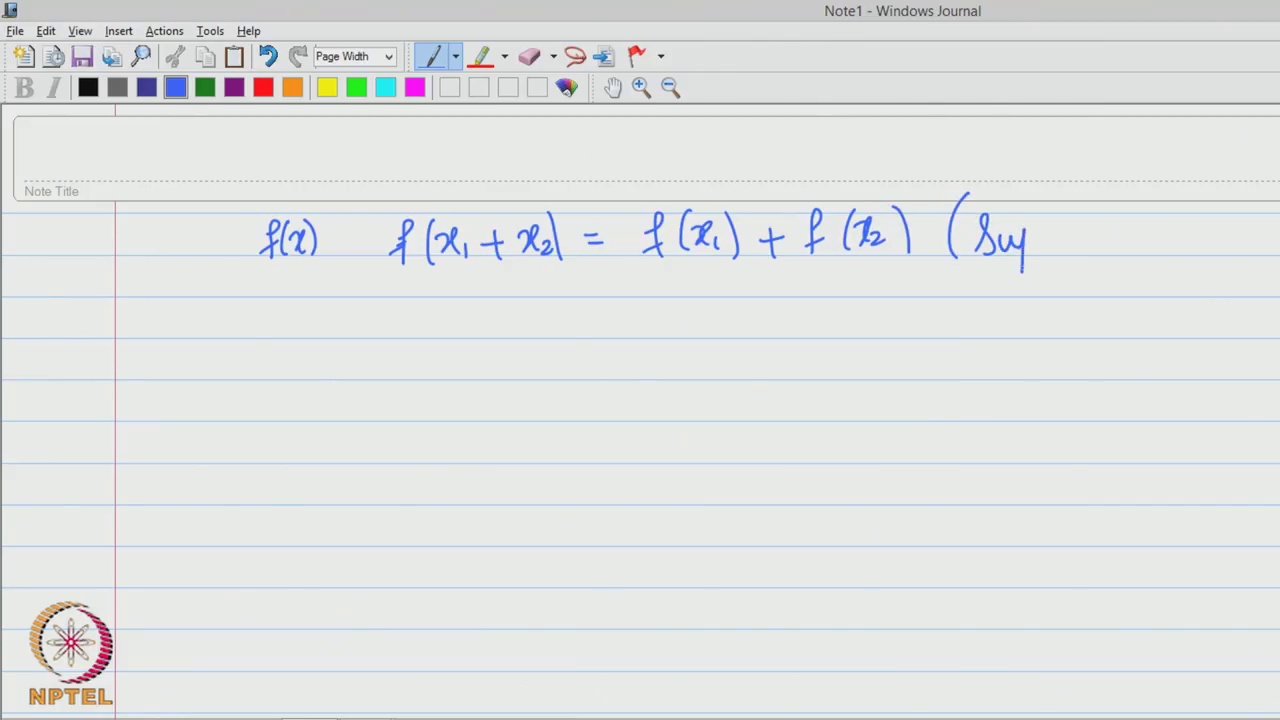 Note1 - Windows Journal
File Edit View Insert Actions Tools Help
Page Width
B I
Note Title
f(x) f(x₁ + x₂) = f(x₁) + f(x₂) (Sup
NPTEL